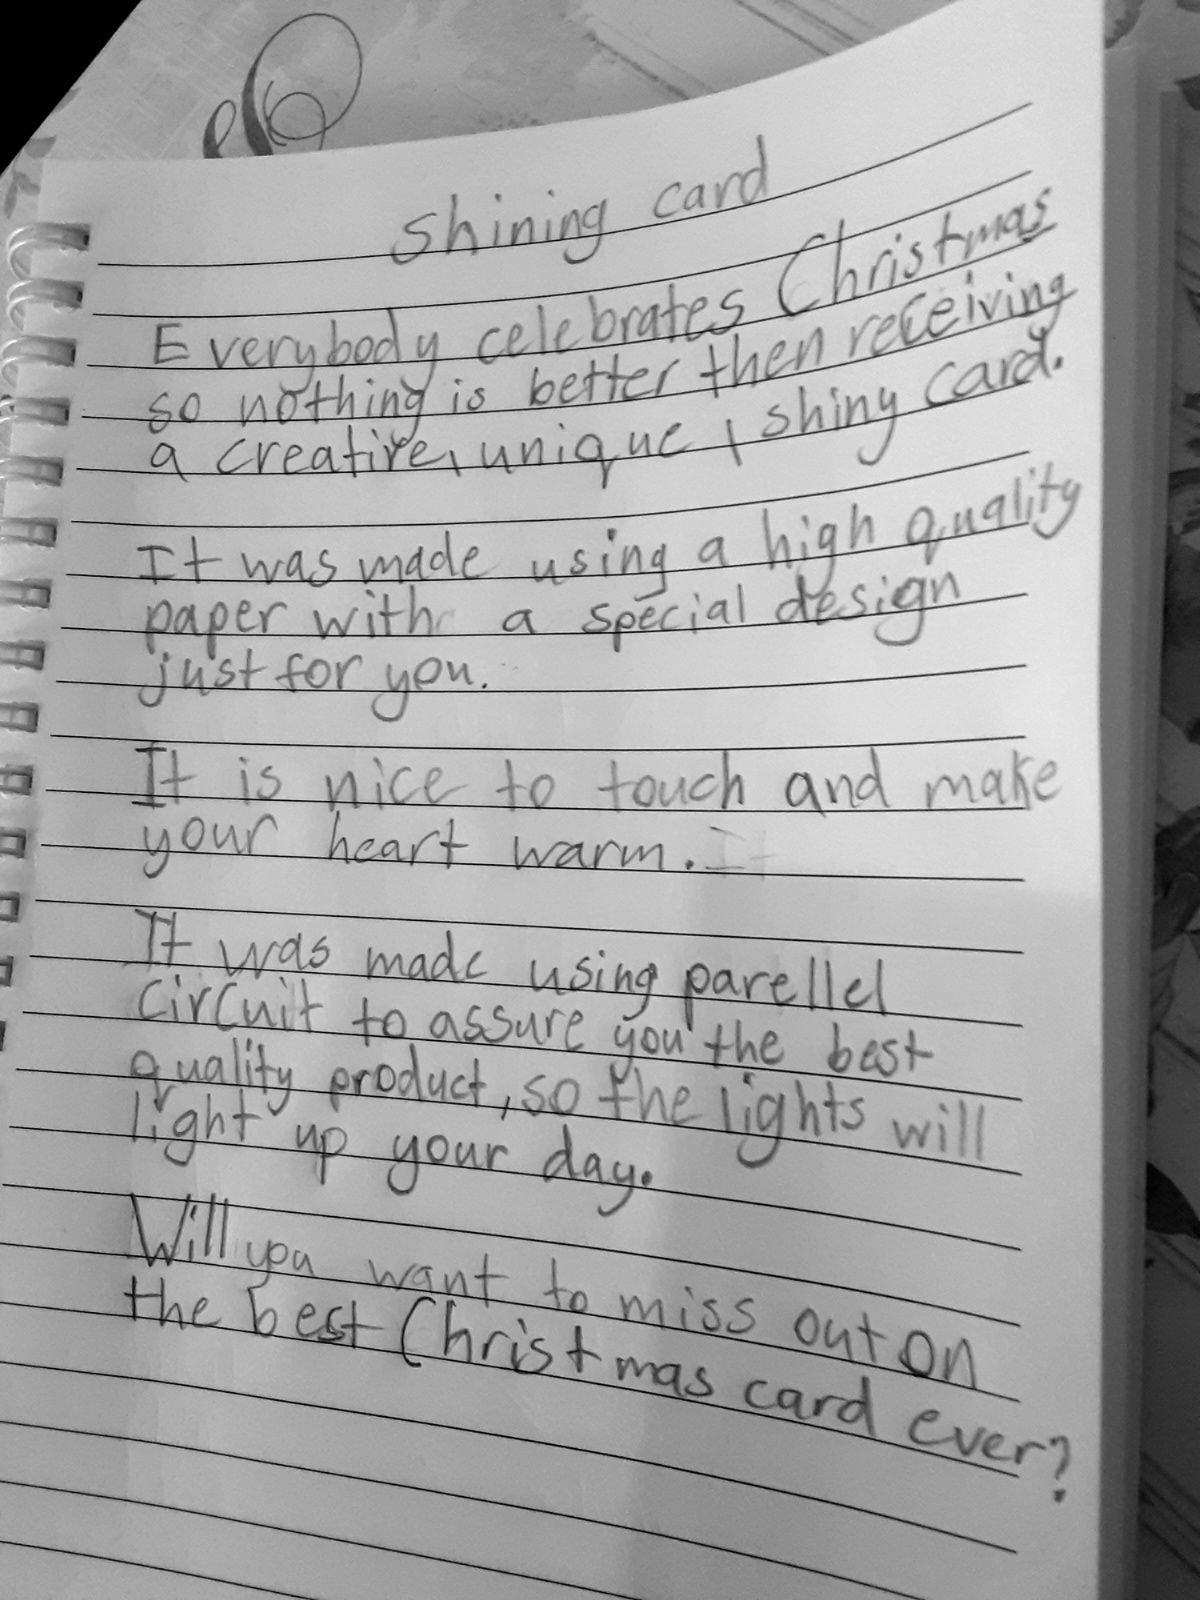 shining card
Everybody celebrates Christmas
so nothing is better then receiving
a creative, unique, shiny card.
It was made using a high quality
paper with a special design
just for you.
It is nice to touch and make
your heart warm. It
It was made using parellel
circuit to assure you the best
quality product, so the lights will
light up your day.
Will you want to miss out on
the best Christmas card ever?